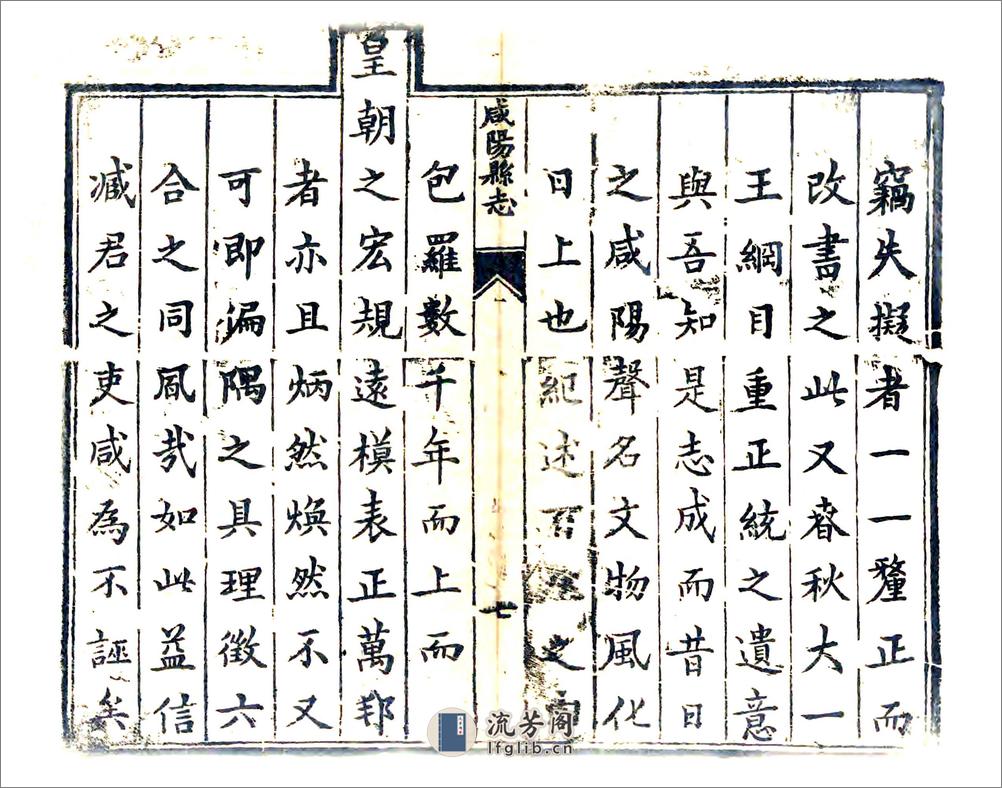 竊失擬者一一釐正而
改書之此又春秋大一
王綱目重正統之遺意
與吾知是志成而昔日
之咸陽聲名文物風化
日上也紀述百之
咸陽縣志
七
包羅數千年而上而
皇朝之宏規遠模表正萬邦
者亦且炳然煥然不又
可即偏隅之具理徵六
合之同風哉如此益信
臧君之吏咸為不誣矣
流芳阁
lfglib.cn